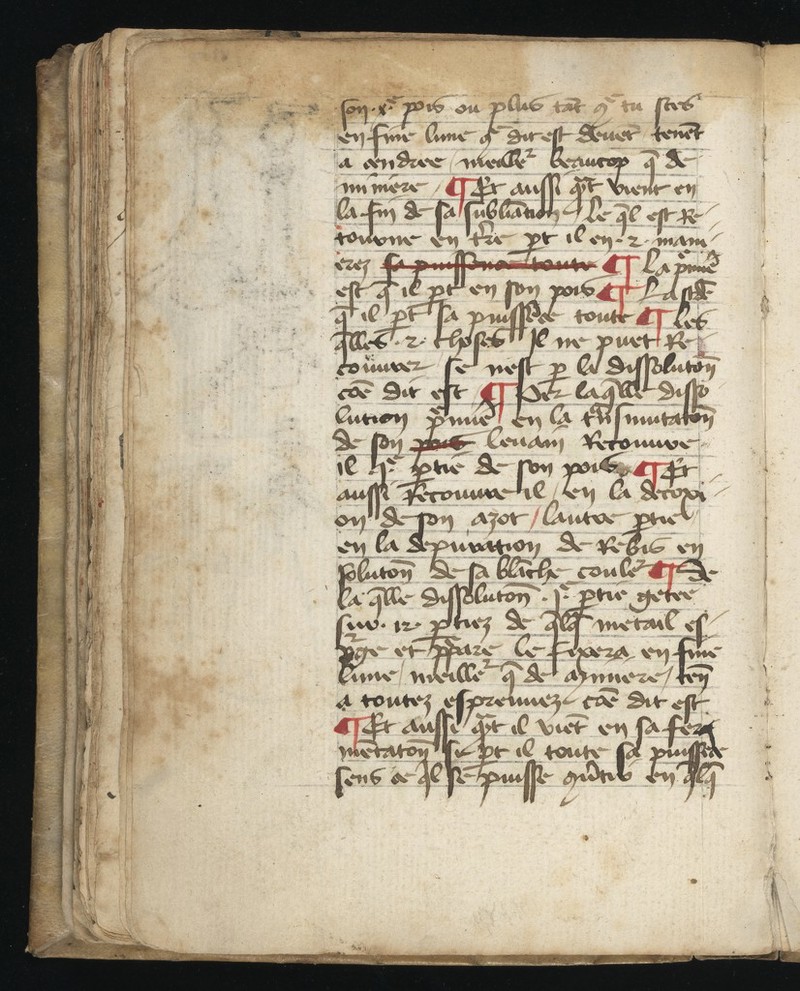 son .x. pois ou plus tãt q̃ tu sces
en fine lune q̃ dit est devet tenẽt
a cendree meille᷑ beaucop q̃ de
miniere ¶ Et aussi q̃t vient en
la fin de sa subliãtion le q̃l est Re-
tourne en t̃re p̱t il en .2. mani-
erez sa puissence toute ¶ La p̃miẽ
est q̃ il p̱t en son pois ¶ La scd̃e
q̃ il p̱t sa puissãce toute ¶ Les
q̃lles .2. choses Il ne puet Re-
couvrer se nest p̱ la dissolutoñ
cõe dit est ¶ Per laq̃lle disso-
lution p̃miẽ en la trñsmutatoñ
de son pois levain Recouvre
il .j. p̱tie de son pois ¶ Et
aussi Recouvre il en la decoxi-
on de son azot / lautre p̱tie
en la depuration de Rebis en
solutoñ de sa blãche coule᷑ ¶ De
la q̃lle dissolutoñ .j. p̱tie getee
sur .12. p̱tiez de q̃lq̃ metail es-
p᷑ge et p̃pare le fixera en fine
lune / meille᷑ q̃ de miniere / ten̄
a toutez espreuvez cõe dit est
¶ Et aussi q̃t il viẽt en sa fer-
mẽtatoñ si p̱t il toute sa puissãce
sens ce q̃l se puisse en q̃lq̃